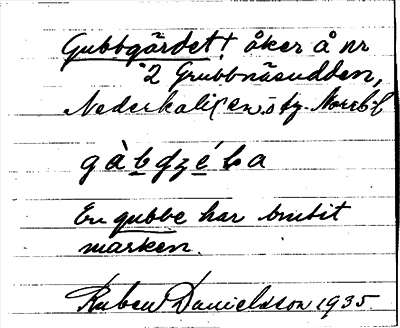 Gubbgärdet† åker å nr
2 Grubbnäsudden,
Nederkalix en. s fg. Norrb. l
gàb̲dzé̲ba
En gubbe har brutit
marken.
Ruben Danielsson 1935